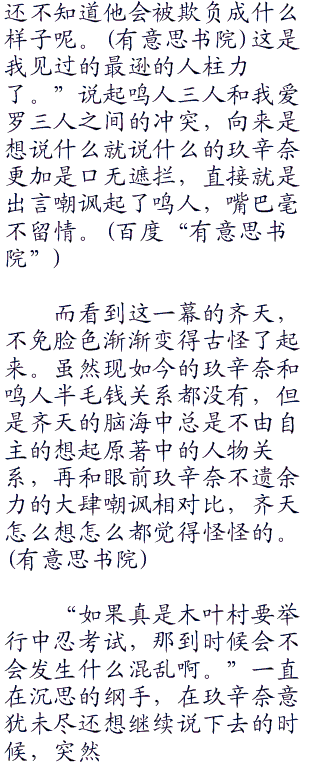 还不知道他会被欺负成什么
样子呢。(有意思书院)这是
我见过的最逊的人柱力
了。”说起鸣人三人和我爱
罗三人之间的冲突，向来是
想说什么就说什么的玖辛奈
更加是口无遮拦，直接就是
出言嘲讽起了鸣人，嘴巴毫
不留情。(百度“有意思书
院”)
而看到这一幕的齐天，
不免脸色渐渐变得古怪了起
来。虽然现如今的玖辛奈和
鸣人半毛钱关系都没有，但
是齐天的脑海中总是不由自
主的想起原著中的人物关
系，再和眼前玖辛奈不遗余
力的大肆嘲讽相对比，齐天
怎么想怎么都觉得怪怪的。
(有意思书院)
“如果真是木叶村要举
行中忍考试，那到时候会不
会发生什么混乱啊。”一直
在沉思的纲手，在玖辛奈意
犹未尽还想继续说下去的时
候，突然